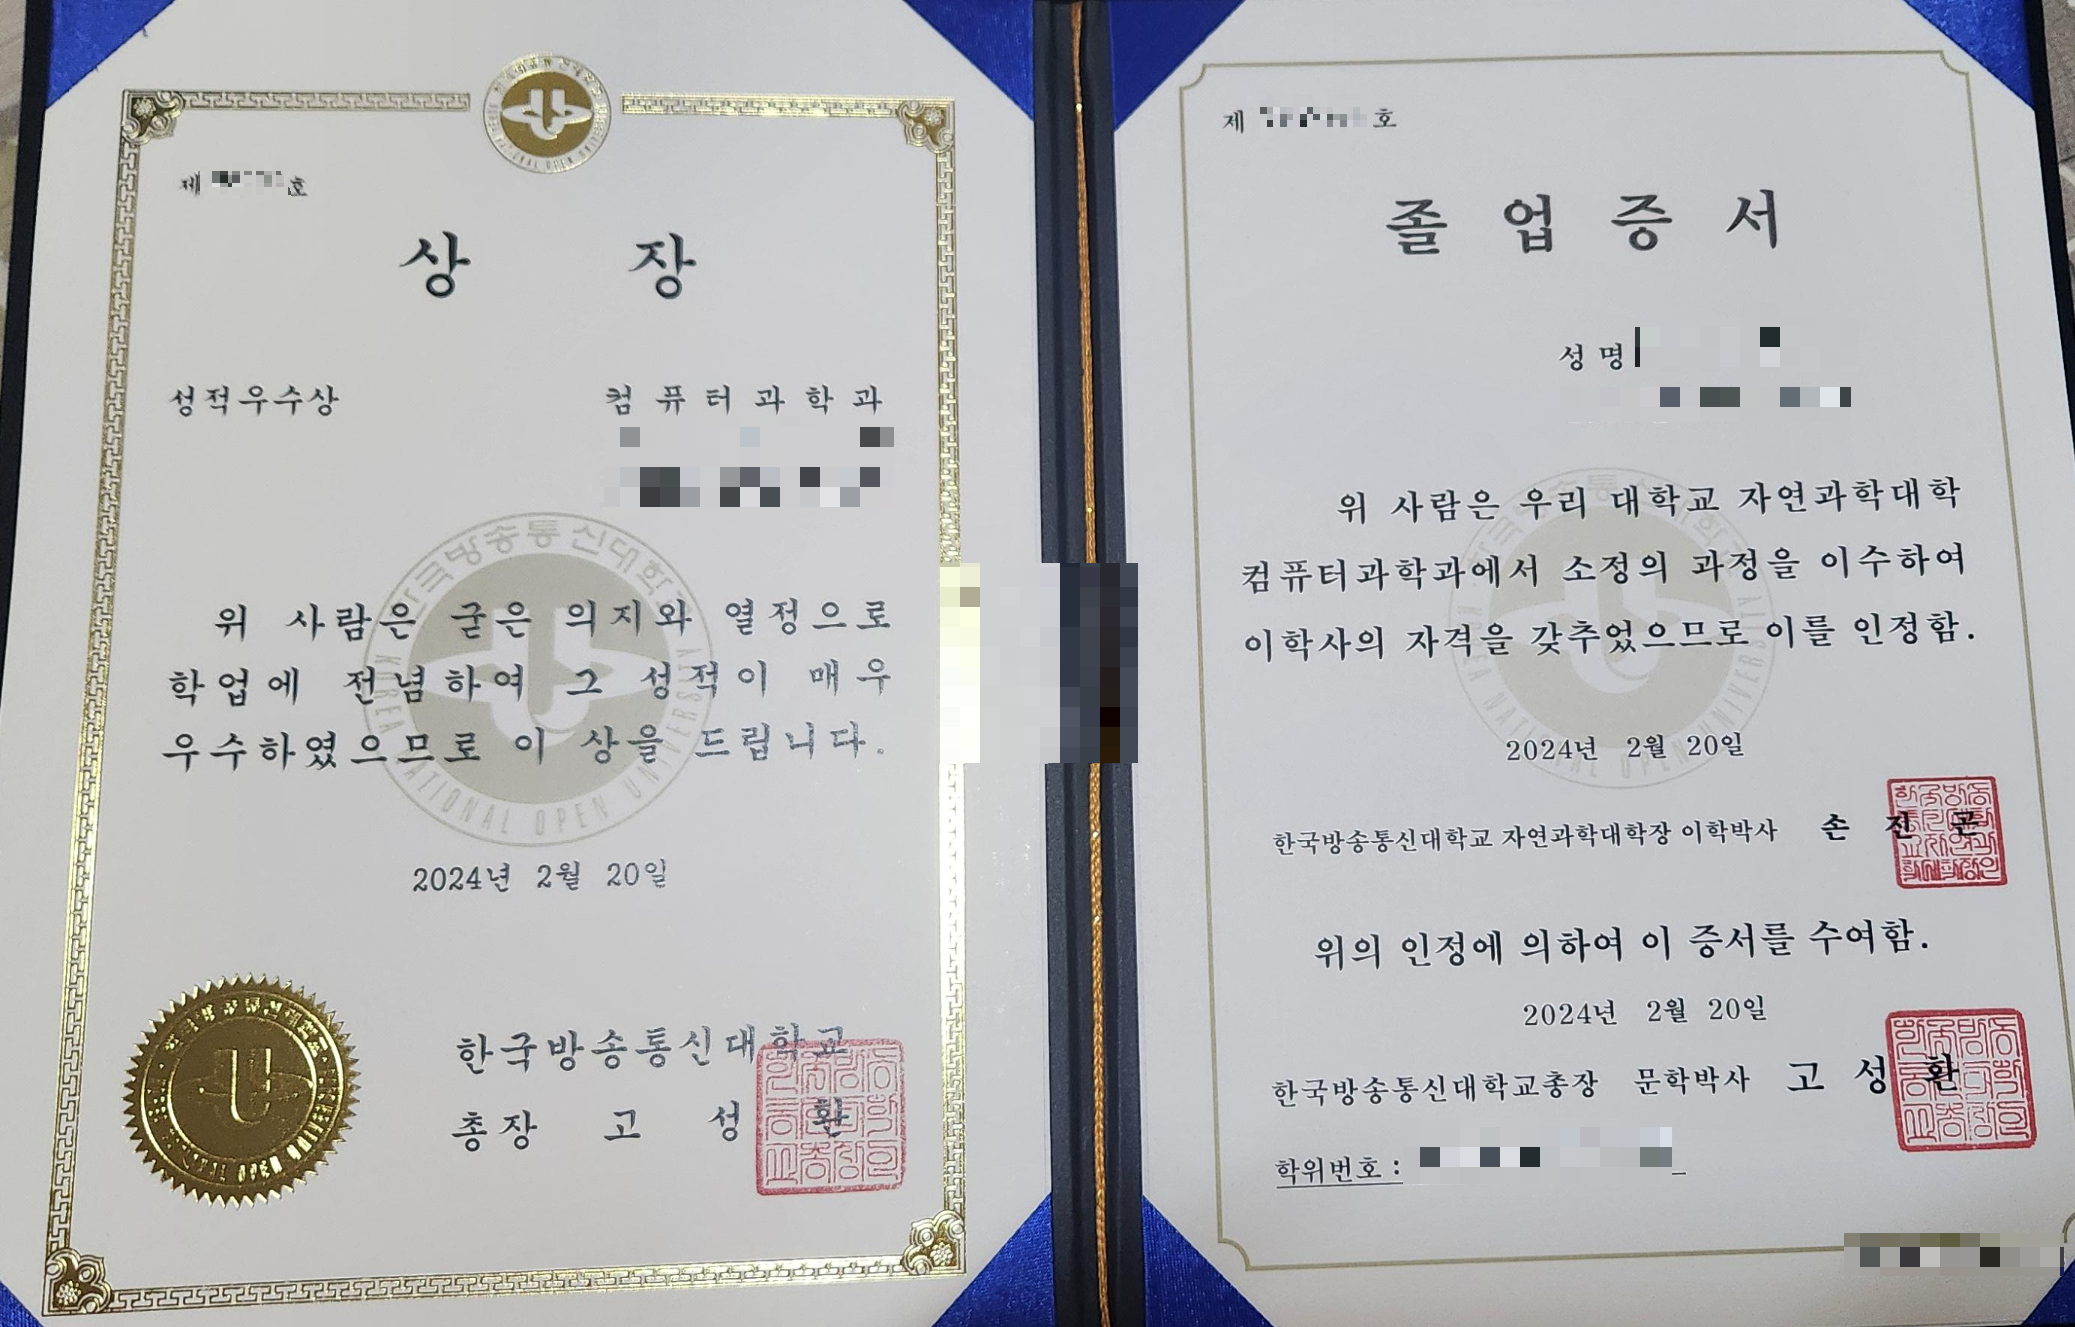 제 호
상 장
성적우수상 컴퓨터과학과
위 사람은 굳은 의지와 열정으로
학업에 전념하여 그 성적이 매우
우수하였으므로 이 상을 드립니다.
2024년 2월 20일
한국방송통신대학교
총장 고 성 환
한국방송통신대학교
KOREA NATIONAL OPEN UNIVERSITY
제 호
졸업증서
성명
위 사람은 우리 대학교 자연과학대학
컴퓨터과학과에서 소정의 과정을 이수하여
이학사의 자격을 갖추었으므로 이를 인정함.
2024년 2월 20일
한국방송통신대학교 자연과학대학장 이학박사 손 진 곤
위의 인정에 의하여 이 증서를 수여함.
2024년 2월 20일
한국방송통신대학교총장 문학박사 고 성 환
학위번호 :